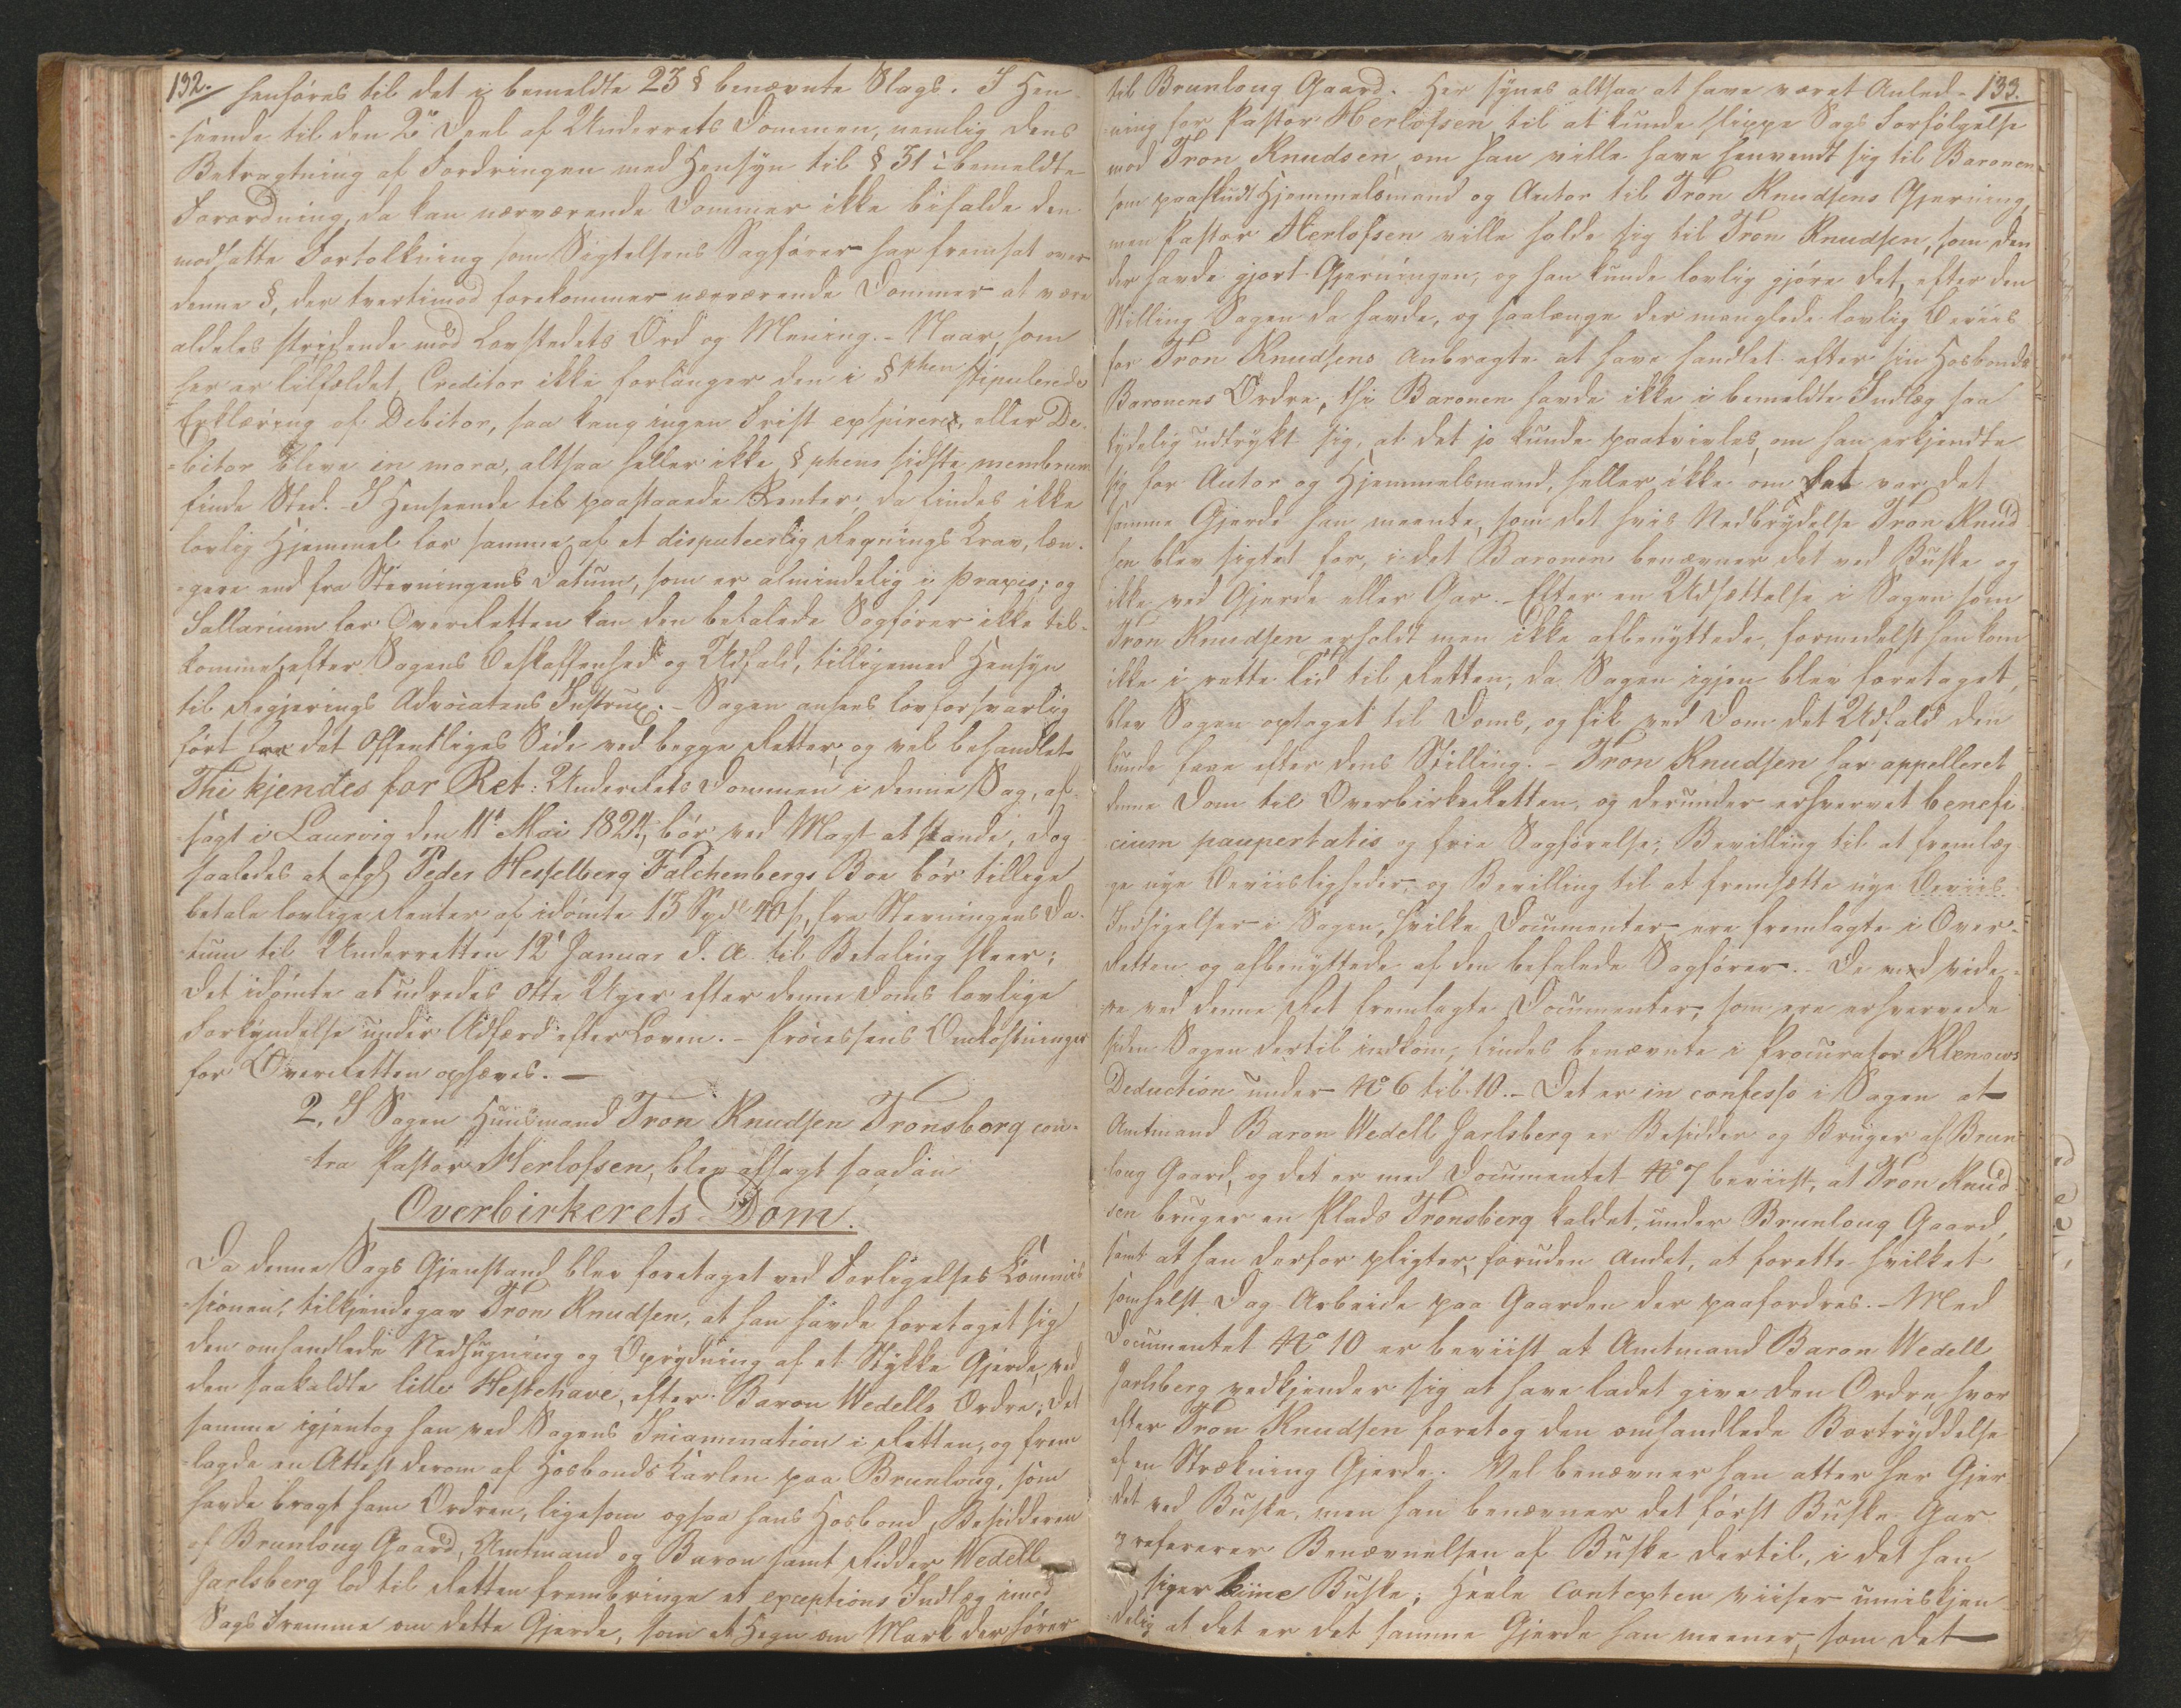 132.
henføres til det i bemeldte 23 § benævnte Slags. I Hen-
=seende til den 2den Deel af Underrets Dommen, nemlig dens
Betragtning af Fordringen med Hensyn til § 31 i bemeldte
Forordning, da kan nærværende Dommer ikke bifalde den
modsatte Fortolkning som Sigtelsens Sagfører har fremsat over
denne §, der tvertimod forekommer nærværende Dommer at være
aldeles stridende mod Lovstedets Ord og Mening. - Naar, som
her er tilfældet, Creditor ikke forlanger den i §phen stipulerede
Erklæring af Debitor, saa kan ingen Frist expirere, eller De-
=bitor blive in mora, altsaa heller ikke §phens sidste membrum
finde Sted. - I Henseende til paastaaede Renter, da findes ikke
lovlig Hjemmel for samme af et disputeerlig Regnings Krav, læn-
=gere end fra Stevningens Datum, som er almindelig i Praxis; og
Sallarium for OverRetten kan den befalede Sagfører ikke til-
komme, efter Sagens Beskaffenhed og Udfald, tilligemed Hensyn
til Regjerings Advocatens Instrux. - Sagen ansees lovforsvarlig
ført fra det Offentliges Side ved begge Retter, og vel behandlet
Thi kjendes for Ret: UnderRets Dommen i denne Sag, af-
=sagt i Laurvig den 11te Mai 1824, bør ved Magt at stande, dog
saaledes at afg. Peder Hesselberg Falchenbergs Boe bør tillige
betale lovlige Renter af idømte 13 Spd 40 s, fra Stevningens Da-
=tum til Underretten 12te Januar d. A. til Betaling skeer;
Det idømte at udredes otte Uger efter denne Doms lovlige
Forkyndelse under Adfærd efter Loven. - Processens Omkostninger
for OverRetten ophæves. -
2, I Sagen Huusmand Tron Knudsen Tronsberg con-
=tra Pastor Herlofsen, blev afsagt saadan
Overbirkerets-Dom.
Da denne Sags Gjenstand blev foretaget ved Forligelses Commis-
=sionen, tilkjendegav Tron Knudsen, at han havde foretaget sig
den omhandlede Nedhugning og Oprydning af et Stykke Gjerde, ved
den saakaldte lille Hestehave, efter Baron Wedells Ordre; det
samme igjentog han ved Sagens Incammination i Retten, og frem-
=lagde en Attest derom af Hosbonds Karlen paa Brunloug, som
havde bragt ham Ordren, ligesom ogsaa hans Hosbond, Besidderen
af Brunloug Gaard, Amtmand og Baron samt Ridder Wedell
Jarlsberg lod til Retten frembringe et exceptions Indlæg imod
Sags Fremme om dette Gjerde, som et Hegn om Mark der hører
133.
til Brunloug Gaard. - Her synes altsaa at have været Anled-
=ning for Pastor Herlofsen til at kunde slippe Sags Forfølgelse
mod Tron Knudsen, om han ville have henvendt sig til Baronen
som paaskudt Hjemmelsmand og Autor til Tron Knudsens Gjerning,
men Pastor Herlofsen ville holde sig til Tron Knudsen, som den
der havde gjort Gjerningen, og han kunde lovlig gjøre det, efter den
Stilling Sagen da havde, og saalænge der manglede lovlig Beviis
for Tron Knudsens Anbragte at have handlet efter sin Hosbonds
Baronens Ordre, thi Baronen havde ikke i bemeldte Indlæg saa
tydelig udtrykt sig, at det jo kunde paatvivles, om han erkjendte
sig for Autor og Hjemmelsmand, heller ikke om det var det
samme Gjerde han meente, som det hvis Nedbrydelse Tron Knud-
sen blev sigtet for, i det Baronen benævner det ved Buske og
ikke ved Gjerde eller Gar. - Efter en Udsættelse i Sagen som
Tron Knudsen erholdt men ikke afbenyttede, formedelst han kom
ikke i rette Tid til Retten, da Sagen igjen blev foretaget,
blev Sagen optaget til Doms, og fik ved Dom det Udfald den
kunde have efter dens Stilling. - Tron Knudsen har appelleret
denne Dom til OverbirkeRetten, og derunder erhvervet benefi-
cium paupertatis og frie Sagførelse, Bevilling til at fremlæg-
ge nye Beviisligheder, og Bevilling til at fremsætte nye Beviis
Indsigelser i Sagen, hvilke Documenter ere fremlagte i Over-
Retten og afbenyttede af den befalede Sagfører. - De med vide-
=re ved denne Ret fremlagte Documenter, som ere erhvervede
siden Sagen dertil indkom, findes benævnte i Procurator Klenows
Deduction under No 6 til 10. - Det er in confesso i Sagen at
Amtmand Baron Wedell Jarlsberg er Besidder og Bruger af Brun-
loug Gaard, og det er med Documentet No 7 beviist, at Tron Knud-
sen bruger en Plads Tronsberg kaldet, under Brunloug Gaard,
samt at han derfor pligter, foruden Andet, at forette hvilket
somhelst Dag Arbeide paa Gaarden der paafordres. - Med
Documentet No 10 er beviist at Amtmand Baron Wedell
Jarlsberg vedkjender sig at have ladet give den Ordre, hvor-
efter Tron Knudsen foretog den omhandlede Bortryddelse
af en Strækning Gjerde. Vel benævner han atter her Gjer-
=det ved Buske, men han benævner det først Buske Gar
og refererer Benævnelsen af Buske dertil, i det han
siger diine Buske; Heele Contexten viiser umiskjen-
=delig at det er det samme Gjerde han meener, som det